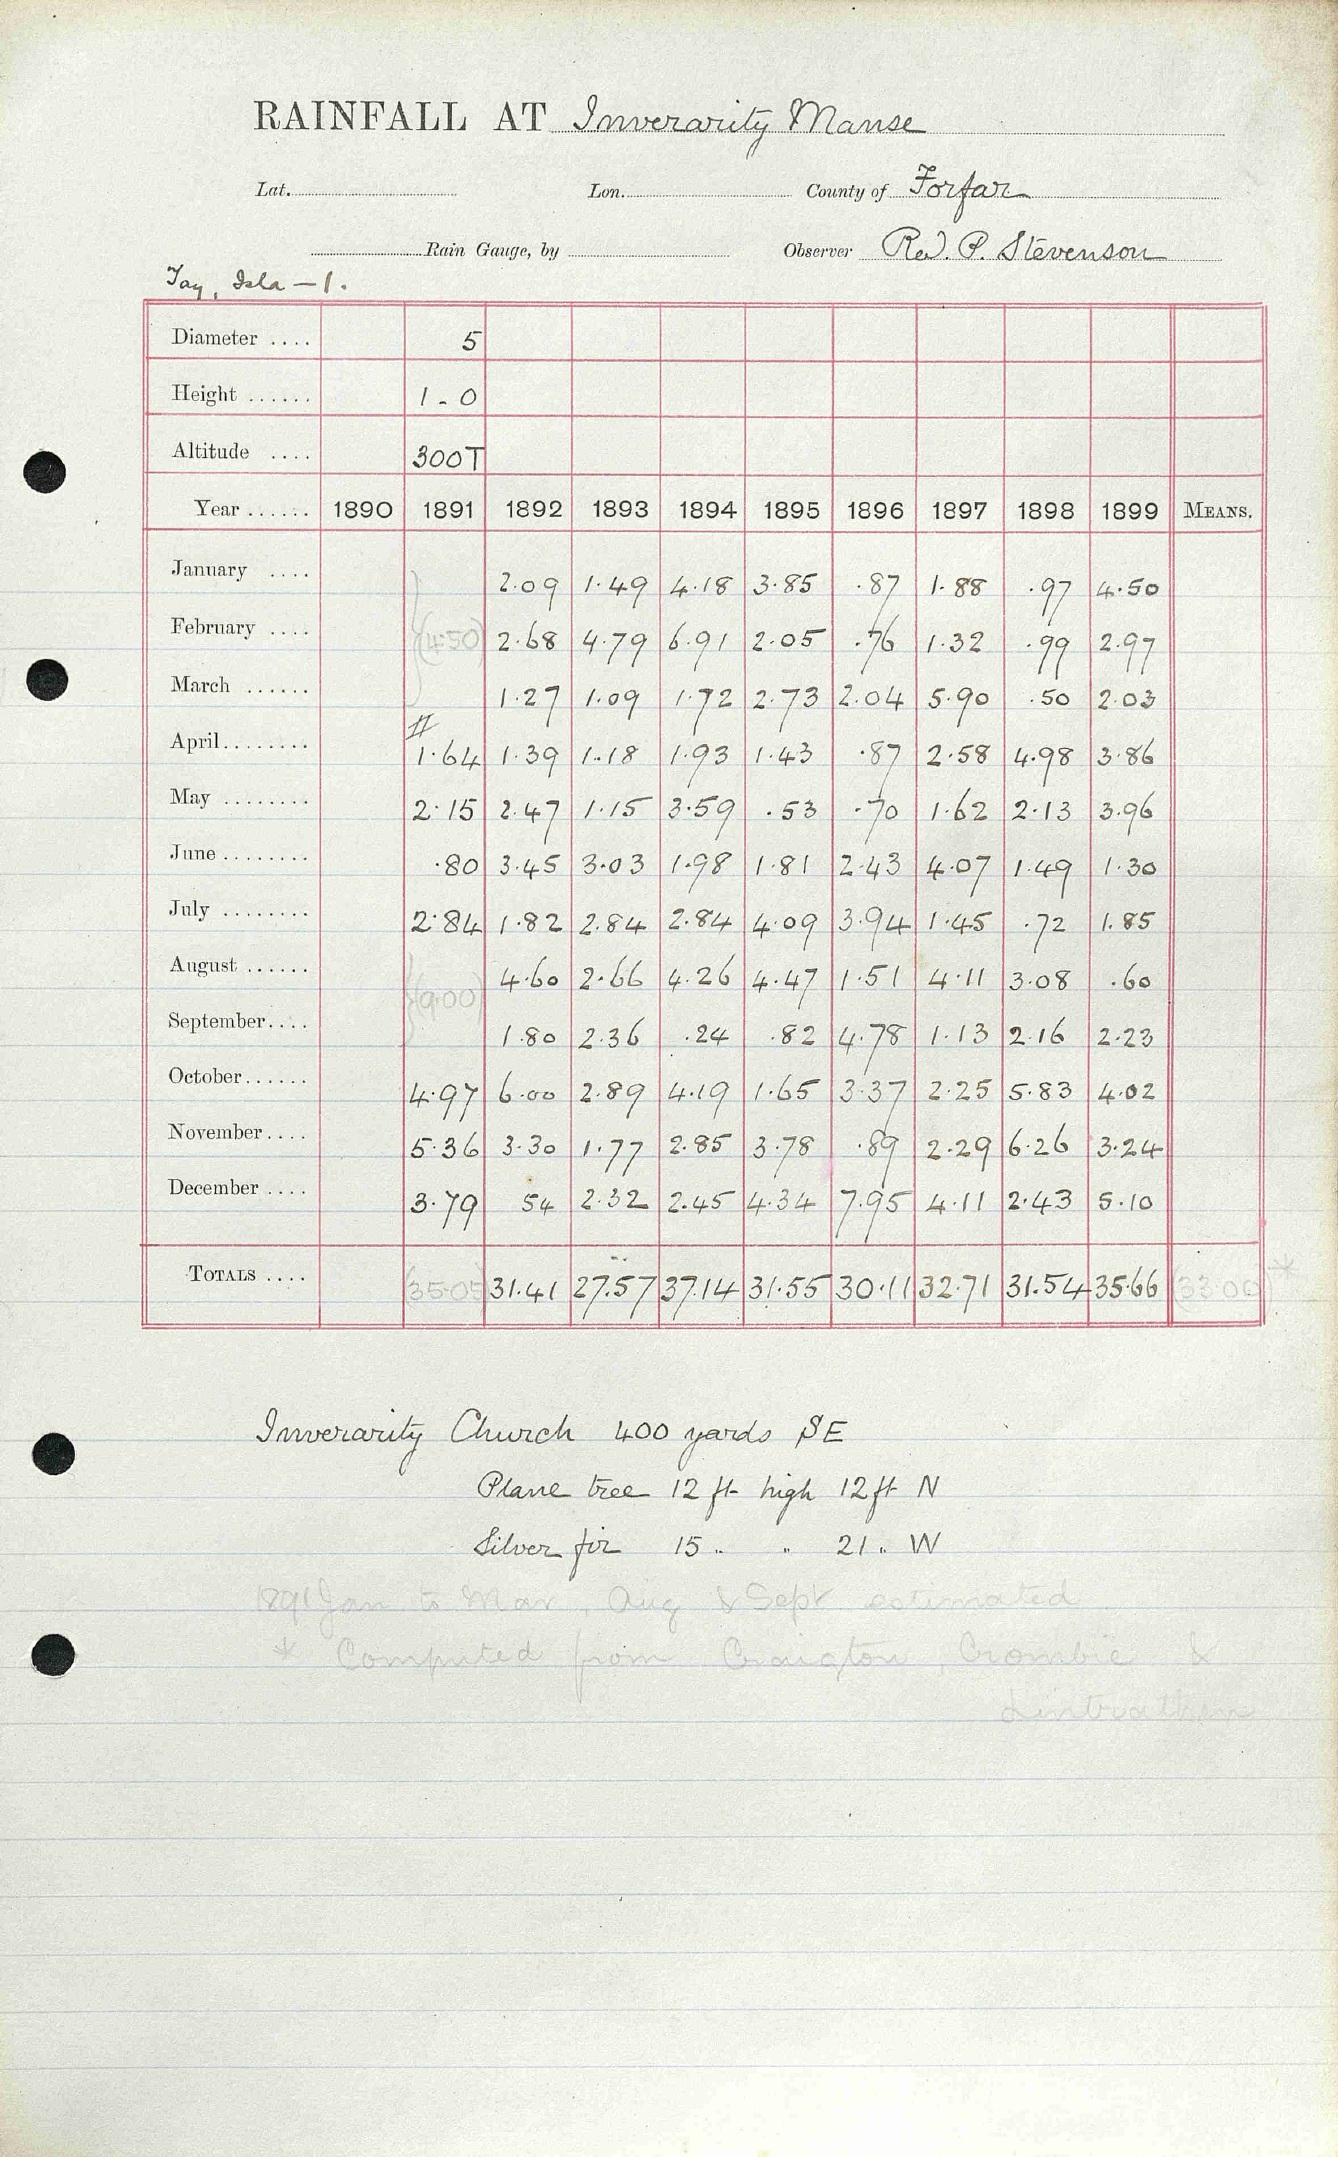 RAINFALL AT Inverarity Manse
Lat. Lon. County of Forfar
Rain Gauge, by Observer Rev. P. Stevenson
Tay, Isla — 1.
Diameter .... 5
Height ...... 1 - 0
Altitude .... 300T
Year ...... 1890 1891 1892 1893 1894 1895 1896 1897 1898 1899 MEANS.
January .... 2.09 1.49 4.18 3.85 .87 1.88 .97 4.50
February .... (4.50) 2.68 4.79 6.91 2.05 .76 1.32 .99 2.97
March ...... 1.27 1.09 1.72 2.73 2.04 5.90 .50 2.03
April........ 1.64 1.39 1.18 1.93 1.43 .87 2.58 4.98 3.86
May ........ 2.15 2.47 1.15 3.59 .53 .70 1.62 2.13 3.96
June ........ .80 3.45 3.03 1.98 1.81 2.43 4.07 1.49 1.30
July ........ 2.84 1.82 2.84 2.84 4.09 3.94 1.45 .72 1.85
August ...... 4.60 2.66 4.26 4.47 1.51 4.11 3.08 .60
(9.00)
September.... 1.80 2.36 .24 .82 4.78 1.13 2.16 2.23
October...... 4.97 6.00 2.89 4.19 1.65 3.37 2.25 5.83 4.02
November.... 5.36 3.30 1.77 2.85 3.78 .89 2.29 6.26 3.24
December .... 3.79 54 2.32 2.45 4.34 7.95 4.11 2.43 5.10
TOTALS .... (35.05) 31.41 27.57 37.14 31.55 30.11 32.71 31.54 35.66 (33.00)*
Inverarity Church 400 yards SE
Plane tree 12 ft high 12 ft N
Silver fir 15 " " 21 " W
1891 Jan to Mar, Aug & Sept estimated
* Computed from Craigton, Crombie &
Lintrathen